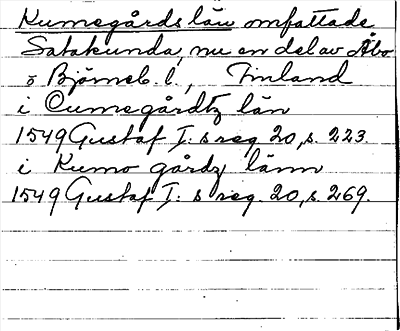 Kumogårds län omfattade
Satakunda, nu en del av Åbo
o Björneb. l., Finland
i Cumogårdtz län
1549 Gustaf I:s reg. 20, s. 223.
i Kumo gårdz länn
1549 Gustaf I:s reg. 20, s. 269.